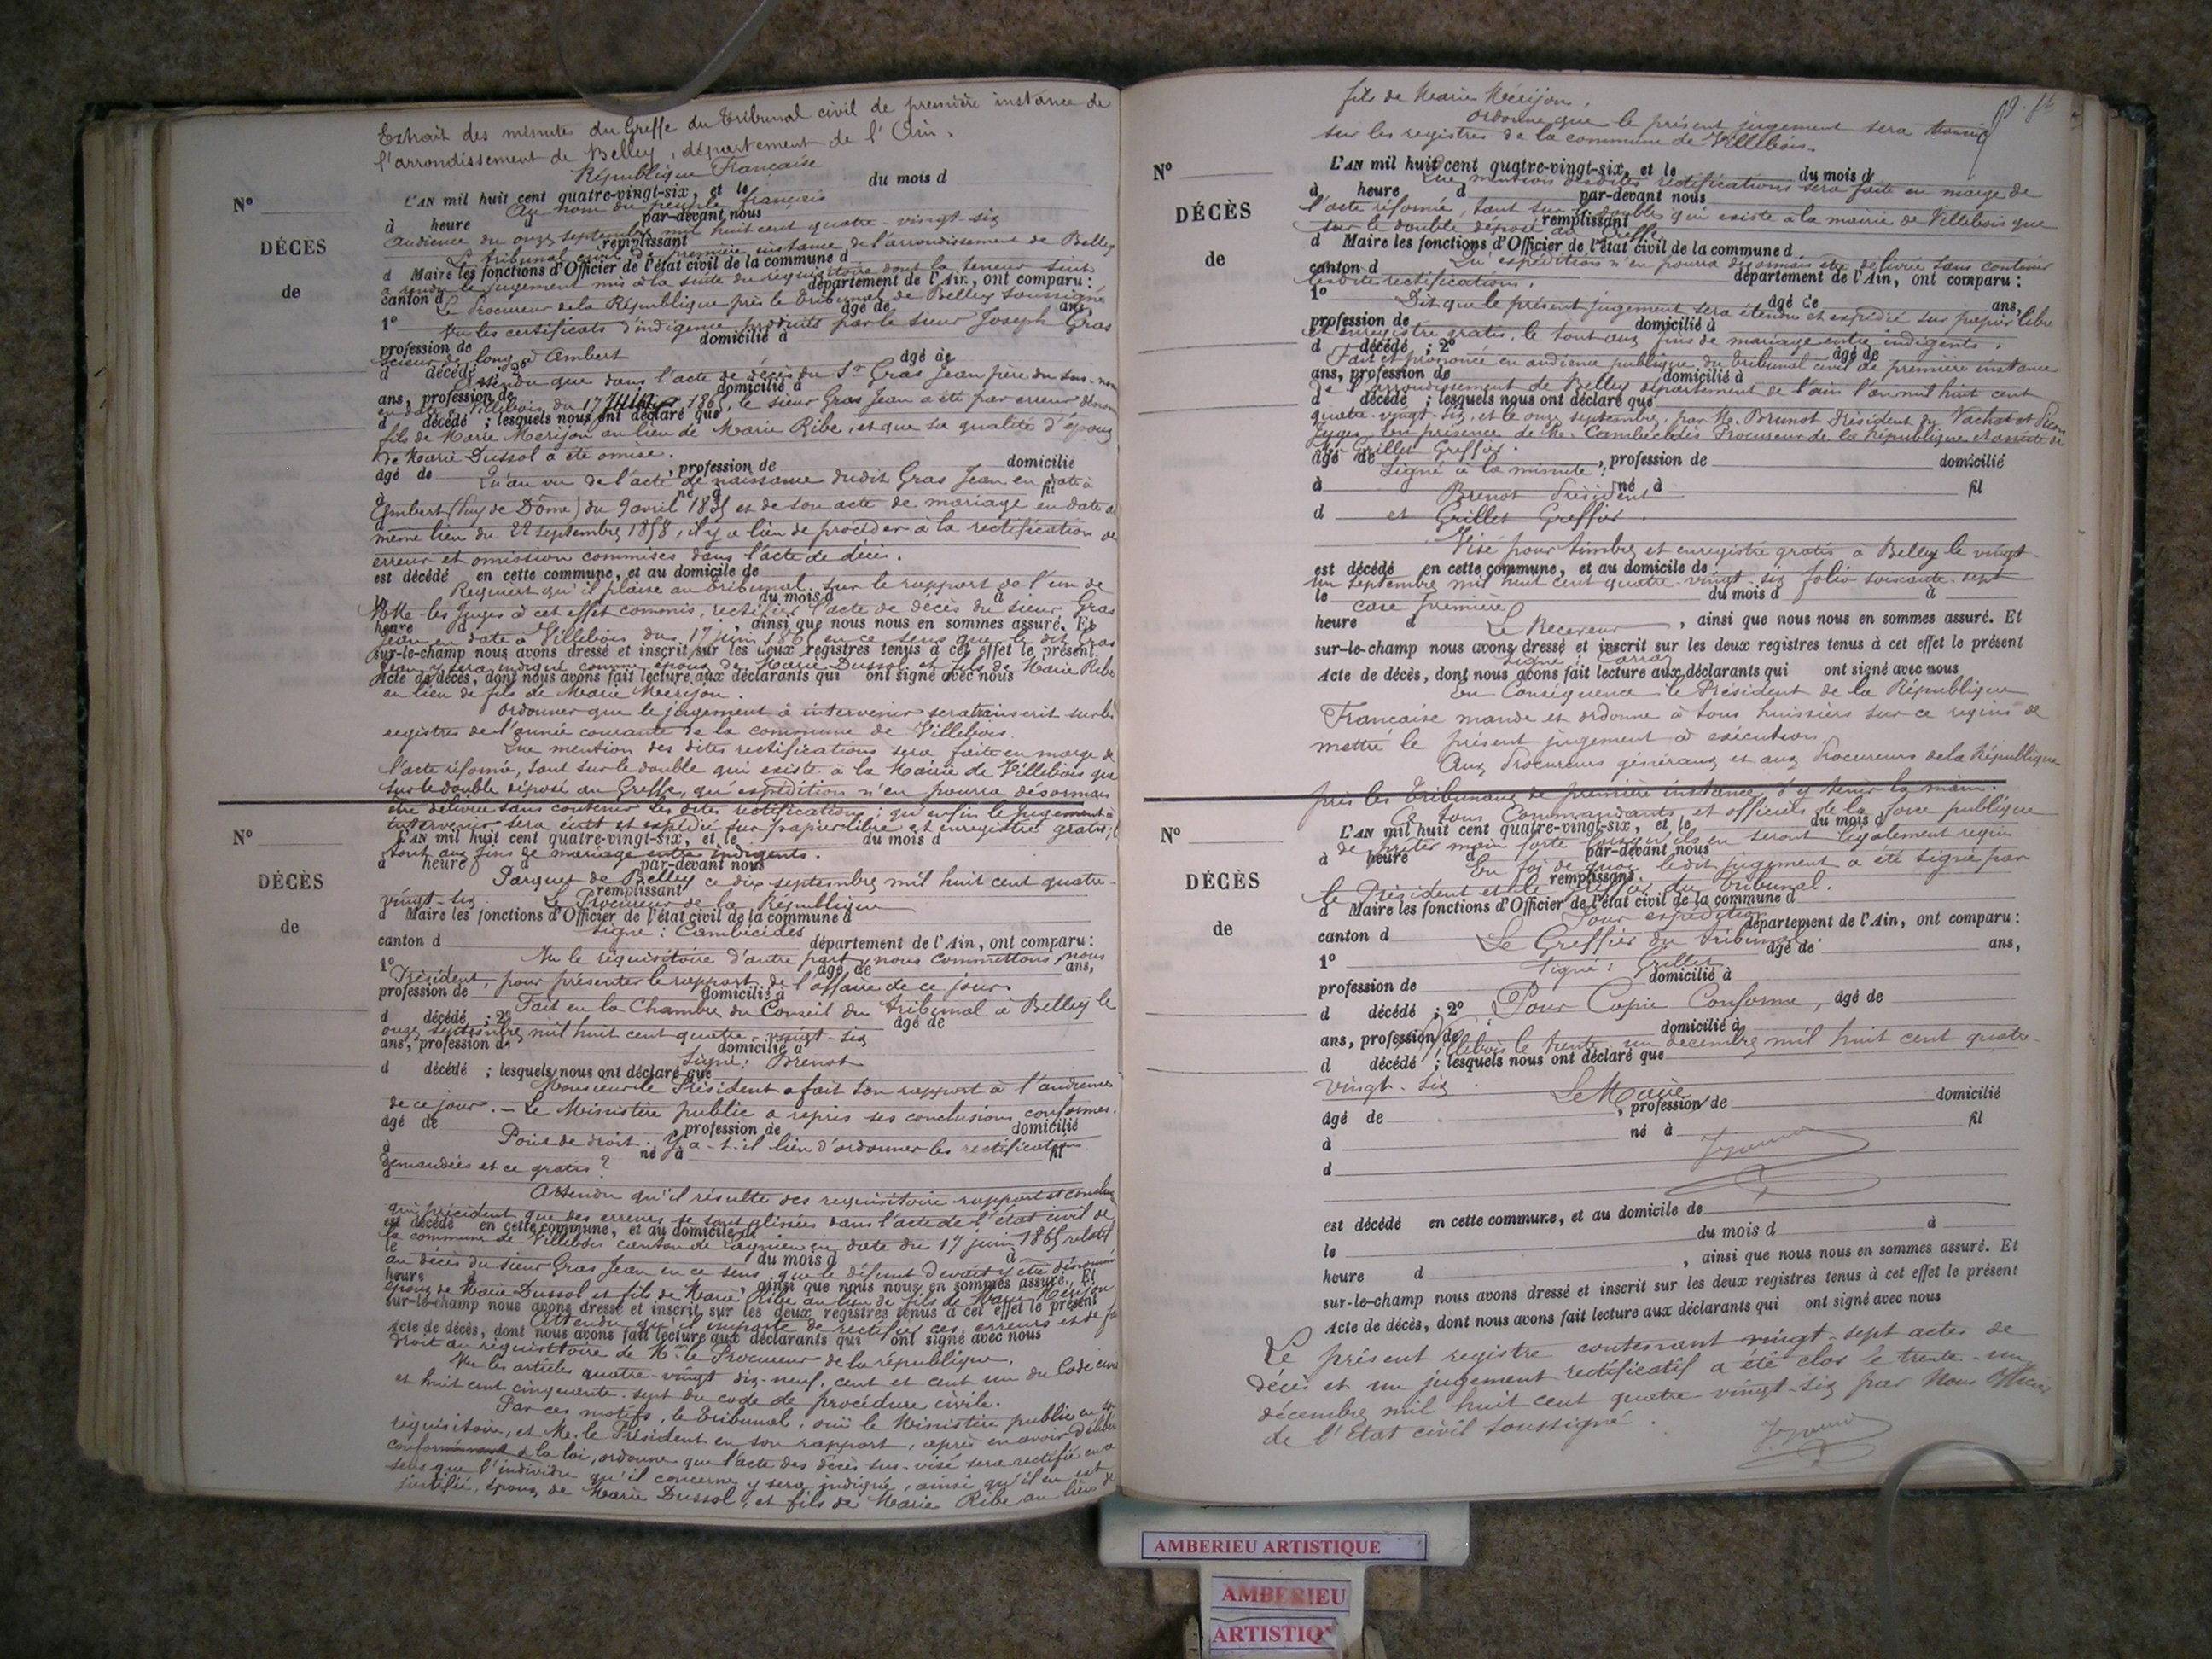 Extrait des minutes du Greffe du Tribunal civil de première instance de
l'arrondissement de Belley, département de l'Ain.
République Française
L'AN mil huit cent quatre-vingt-six, et le du mois d
Nº
Au nom du peuple français
à heure d par-devant nous
Audience du onze septembre mil huit cent quatre-vingt-six
DÉCÈS
remplissant
Le tribunal civil de première instance de l'arrondissement de Belley
d Maire les fonctions d'Officier de l'état civil de la commune d
a rendu le jugement mis à la suite du réquisitoire dont la teneur suit
de
canton d département de l'Ain, ont comparu :
Le Procureur de la République près le Tribunal de Belley soussigné
1º âgé de ans,
Vu les certificats d'indigence produits par le sieur Joseph Gras
profession de domicilié à
scieur de long à Ambert
d décédé ; 2º âgé de
Attendu que dans l'acte de décès du Sr Gras Jean père du sus-nommé
ans, profession de domicilié à
en date à Villebois du 17 1865, le sieur Gras Jean a été par erreur
d décédé ; lesquels nous ont déclaré que
fils de Marie Merijon au lieu de Marie Ribe, et que sa qualité d'époux
de Marie Dussol a été omise.
âgé de , profession de domicilié
Qu'au vu de l'acte de naissance dudit Gras Jean en date à
à né à fil
Ambert (Puy de Dôme) du 9 avril 1835 et de son acte de mariage en date au
d
même lieu du 22 septembre 1858, il y a lieu de procéder à la rectification de
erreur et omission commises dans l'acte de décès.
est décédé en cette commune, et au domicile de
Requiert qu'il plaise au Tribunal, sur le rapport de l'un de
le du mois d à
MM. les Juges à cet effet commis, rectifier l'acte de décès du sieur Gras
heure d , ainsi que nous nous en sommes assuré. Et
Jean en date à Villebois du 17 juin 1865 en ce sens que le dit Gras
sur-le-champ nous avons dressé et inscrit sur les deux registres tenus à cet effet le présent
Jean y sera indiqué comme époux de Marie Dussol et fils de Marie Ribe
Acte de décès, dont nous avons fait lecture aux déclarants qui ont signé avec nous
au lieu de fils de Marie Merijon.
Ordonner que le jugement à intervenir sera transcrit sur les
registres de l'année courante de la commune de Villebois.
Que mention des dites rectifications sera faite en marge de
l'acte réformé, tant sur le double qui existe à la Mairie de Villebois que
sur le double déposé au Greffe, qu'expédition n'en pourra désormais
être délivrée sans contenir les dites rectifications ; qu'enfin le jugement à
intervenir sera écrit et expédié sur papier libre et enregistré gratis, le
Nº
L'AN mil huit cent quatre-vingt-six, et le du mois d
tout aux fins de mariage entre indigents.
à heure d par-devant nous
Parquet de Belley ce dix septembre mil huit cent quatre-
DÉCÈS
remplissant
vingt-six. Le Procureur de la République
d Maire les fonctions d'Officier de l'état civil de la commune d
Signé : Cambécédès
de
canton d département de l'Ain, ont comparu :
Vu le réquisitoire d'autre part, nous commettons, nous
1º âgé de ans,
Président, pour présenter le rapport de l'affaire de ce jour.
profession de domicilié à
Fait en la Chambre du Conseil du tribunal à Belley le
d décédé ; 2º âgé de
onze septembre mil huit cent quatre-vingt-six
ans, profession de domicilié à
Signé : Brenot
d décédé ; lesquels nous ont déclaré que
Monsieur le Président a fait son rapport à l'audience
de ce jour. — Le Ministère public a repris ses conclusions conformes.
âgé de , profession de domicilié
Point de droit. Y a-t-il lieu d'ordonner les rectifications
à né à fil
demandées et ce gratis ?
d
Attendu qu'il résulte des réquisitoire rapport et
qui précèdent que des erreurs se sont glissées dans l'acte de l'état civil de
est décédé en cette commune, et au domicile de
la commune de Villebois canton de Lagnieu en date du 17 juin 1865 relatif
le du mois d à
au décès du sieur Gras Jean en ce sens que le défunt devait y être dénommé
heure d , ainsi que nous nous en sommes assuré. Et
époux de Marie Dussol et fils de Marie Ribe au lieu de fils de Marie Mérijon.
sur-le-champ nous avons dressé et inscrit sur les deux registres tenus à cet effet le présent
Attendu qu'il importe de rectifier ces erreurs et de
Acte de décès, dont nous avons fait lecture aux déclarants qui ont signé avec nous
droit au réquisitoire de Mr le Procureur de la république.
Vu les articles quatre-vingt dix-neuf, cent et cent un du Code civil
et huit cent cinquante-sept du code de procédure civile.
Par ces motifs, le Tribunal, ouï le Ministère public en son
réquisitoire, et M. le Président en son rapport, après en avoir délibéré
conformément à la loi, ordonne que l'acte des décès sus-visé sera rectifié en ce
sens que l'individu qu'il concerne y sera indiqué, ainsi qu'il en est
justifié, époux de Marie Dussol, et fils de Marie Ribe au lieu de
fils de Marie Mérijon.
Ordonne que le présent jugement sera
sur les registres de la commune de Villebois.
Nº
L'AN mil huit cent quatre-vingt-six, et le du mois d
Que mention desdites rectifications sera faite en marge de
à heure d par-devant nous
l'acte réformé, tant sur le double qui existe à la mairie de Villebois que
DÉCÈS
remplissant
sur le double déposé au Greffe.
d Maire les fonctions d'Officier de l'état civil de la commune d
Qu'expédition n'en pourra désormais être délivrée sans contenir
de
canton d département de l'Ain, ont comparu :
lesdites rectifications.
1º âgé de ans,
Dit que le présent jugement sera étendu et expédié sur papier libre
profession de domicilié à
et enregistré gratis, le tout aux fins de mariage entre indigents.
d décédé ; 2º âgé de
Fait et prononcé en audience publique du tribunal civil de première instance
ans, profession de domicilié à
de l'arrondissement de Belley département de l'ain l'an mil huit cent
d décédé ; lesquels nous ont déclaré que
quatre-vingt-six, et le onze septembre, par M. Brenot Président, Vachat et
Juges, en présence de M. Cambécédès Procureur de la République et assisté de
Me Grillet Greffier.
âgé de , profession de domicilié
Signé à la minute :
à né à fil
Brenot Président
d et Grillet Greffier.
Visé pour timbre et enregistré gratis à Belley le vingt-
est décédé en cette commune, et au domicile de
un septembre mil huit cent quatre-vingt-six folio soixante-sept
le du mois d à
case première
heure d , ainsi que nous nous en sommes assuré. Et
Le Receveur
sur-le-champ nous avons dressé et inscrit sur les deux registres tenus à cet effet le présent
Signé :
Acte de décès, dont nous avons fait lecture aux déclarants qui ont signé avec nous
En Conséquence le Président de la République
Française mande et ordonne à tous huissiers sur ce requis de
mettre le présent jugement à exécution.
Aux Procureurs généraux et aux Procureurs de la République
près les Tribunaux de première instance d'y tenir la main.
A tous Commandants et officiers de la force publique
Nº
L'AN mil huit cent quatre-vingt-six, et le du mois d
de prêter main forte lorsqu'ils en seront légalement requis
à heure d par-devant nous
En foi de quoi, ledit jugement a été signé par
DÉCÈS
remplissant
le Président et le Greffier du Tribunal.
d Maire les fonctions d'Officier de l'état civil de la commune d
Pour expédition
de
canton d département de l'Ain, ont comparu :
Le Greffier du tribunal
1º âgé de ans,
Signé : Grillet
profession de domicilié à
d décédé ; 2º Pour Copie Conforme, âgé de
ans, profession de domicilié à
Villebois le trente-un décembre mil huit cent quatre-
d décédé ; lesquels nous ont déclaré que
vingt-six.
Le Maire
âgé de , profession de domicilié
à né à fil
d
est décédé en cette commune, et au domicile de
le du mois d à
heure d , ainsi que nous nous en sommes assuré. Et
sur-le-champ nous avons dressé et inscrit sur les deux registres tenus à cet effet le présent
Acte de décès, dont nous avons fait lecture aux déclarants qui ont signé avec nous
Le présent registre contenant vingt-sept actes de
décès et un jugement rectificatif a été clos le trente-un
décembre mil huit cent quatre-vingt-six par Nous Officier
de l'Etat civil soussigné.
AMBERIEU ARTISTIQUE
AMBERIEU
ARTISTIQ